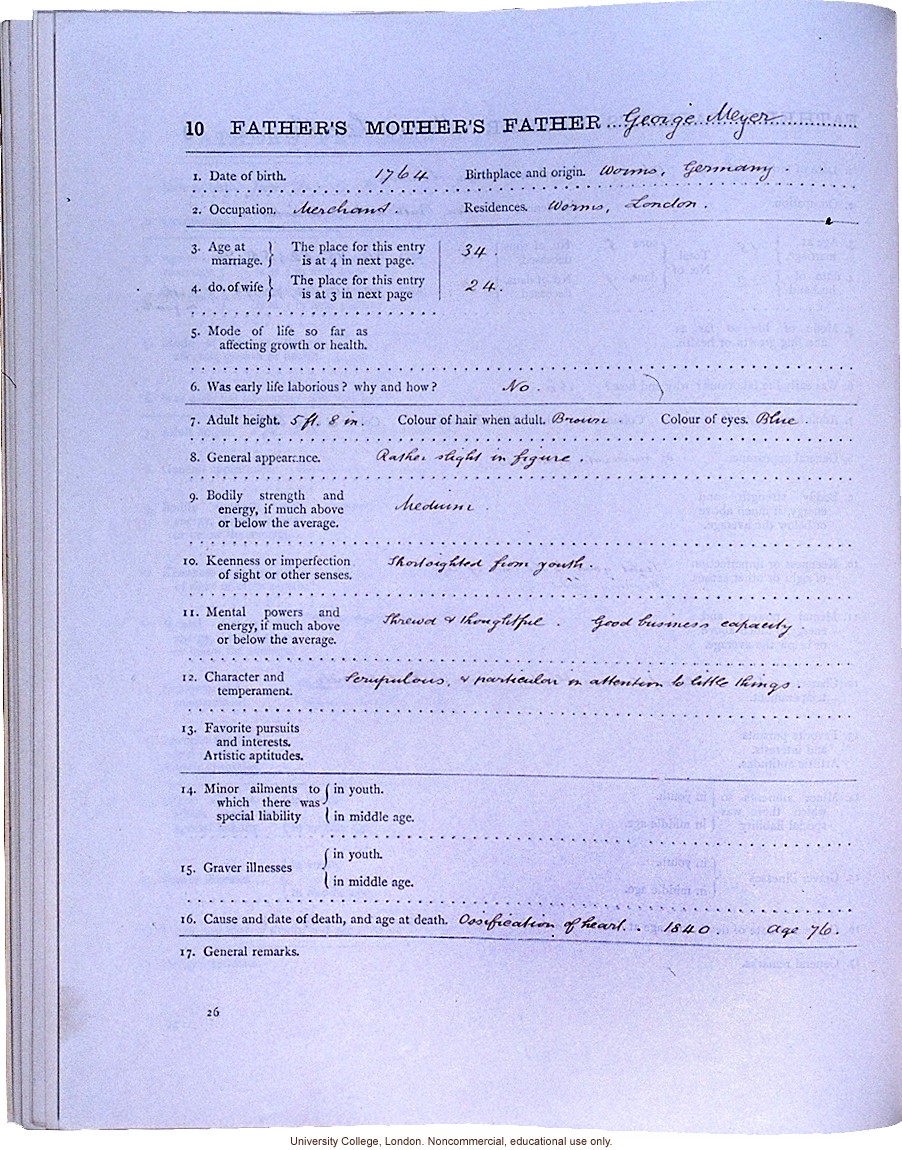 10 FATHER'S MOTHER'S FATHER ... George Meyer
1. Date of birth. 1764 Birthplace and origin. Worms, Germany.
2. Occupation. Merchant. Residences. Worms, London.
3. Age at marriage. } The place for this entry is at 4 in next page. 34.
4. do. of wife } The place for this entry is at 3 in next page 24.
5. Mode of life so far as
affecting growth or health.
6. Was early life laborious? why and how? No.
7. Adult height. 5 ft. 8 in. Colour of hair when adult. Brown. Colour of eyes. Blue.
8. General appearance. Rather slight in figure.
9. Bodily strength and
energy, if much above
or below the average. Medium.
10. Keenness or imperfection
of sight or other senses. Shortsighted from youth.
11. Mental powers and
energy, if much above
or below the average. Shrewd & thoughtful. Good business capacity
12. Character and
temperament. Scrupulous, & particular in attention to little things.
13. Favorite pursuits
and interests.
Artistic aptitudes.
14. Minor ailments to
which there was
special liability { in youth.
{ in middle age.
15. Graver illnesses { in youth.
{ in middle age.
16. Cause and date of death, and age at death. Ossification of heart. 1840 Age 76.
17. General remarks.
26
University College, London. Noncommercial, educational use only.